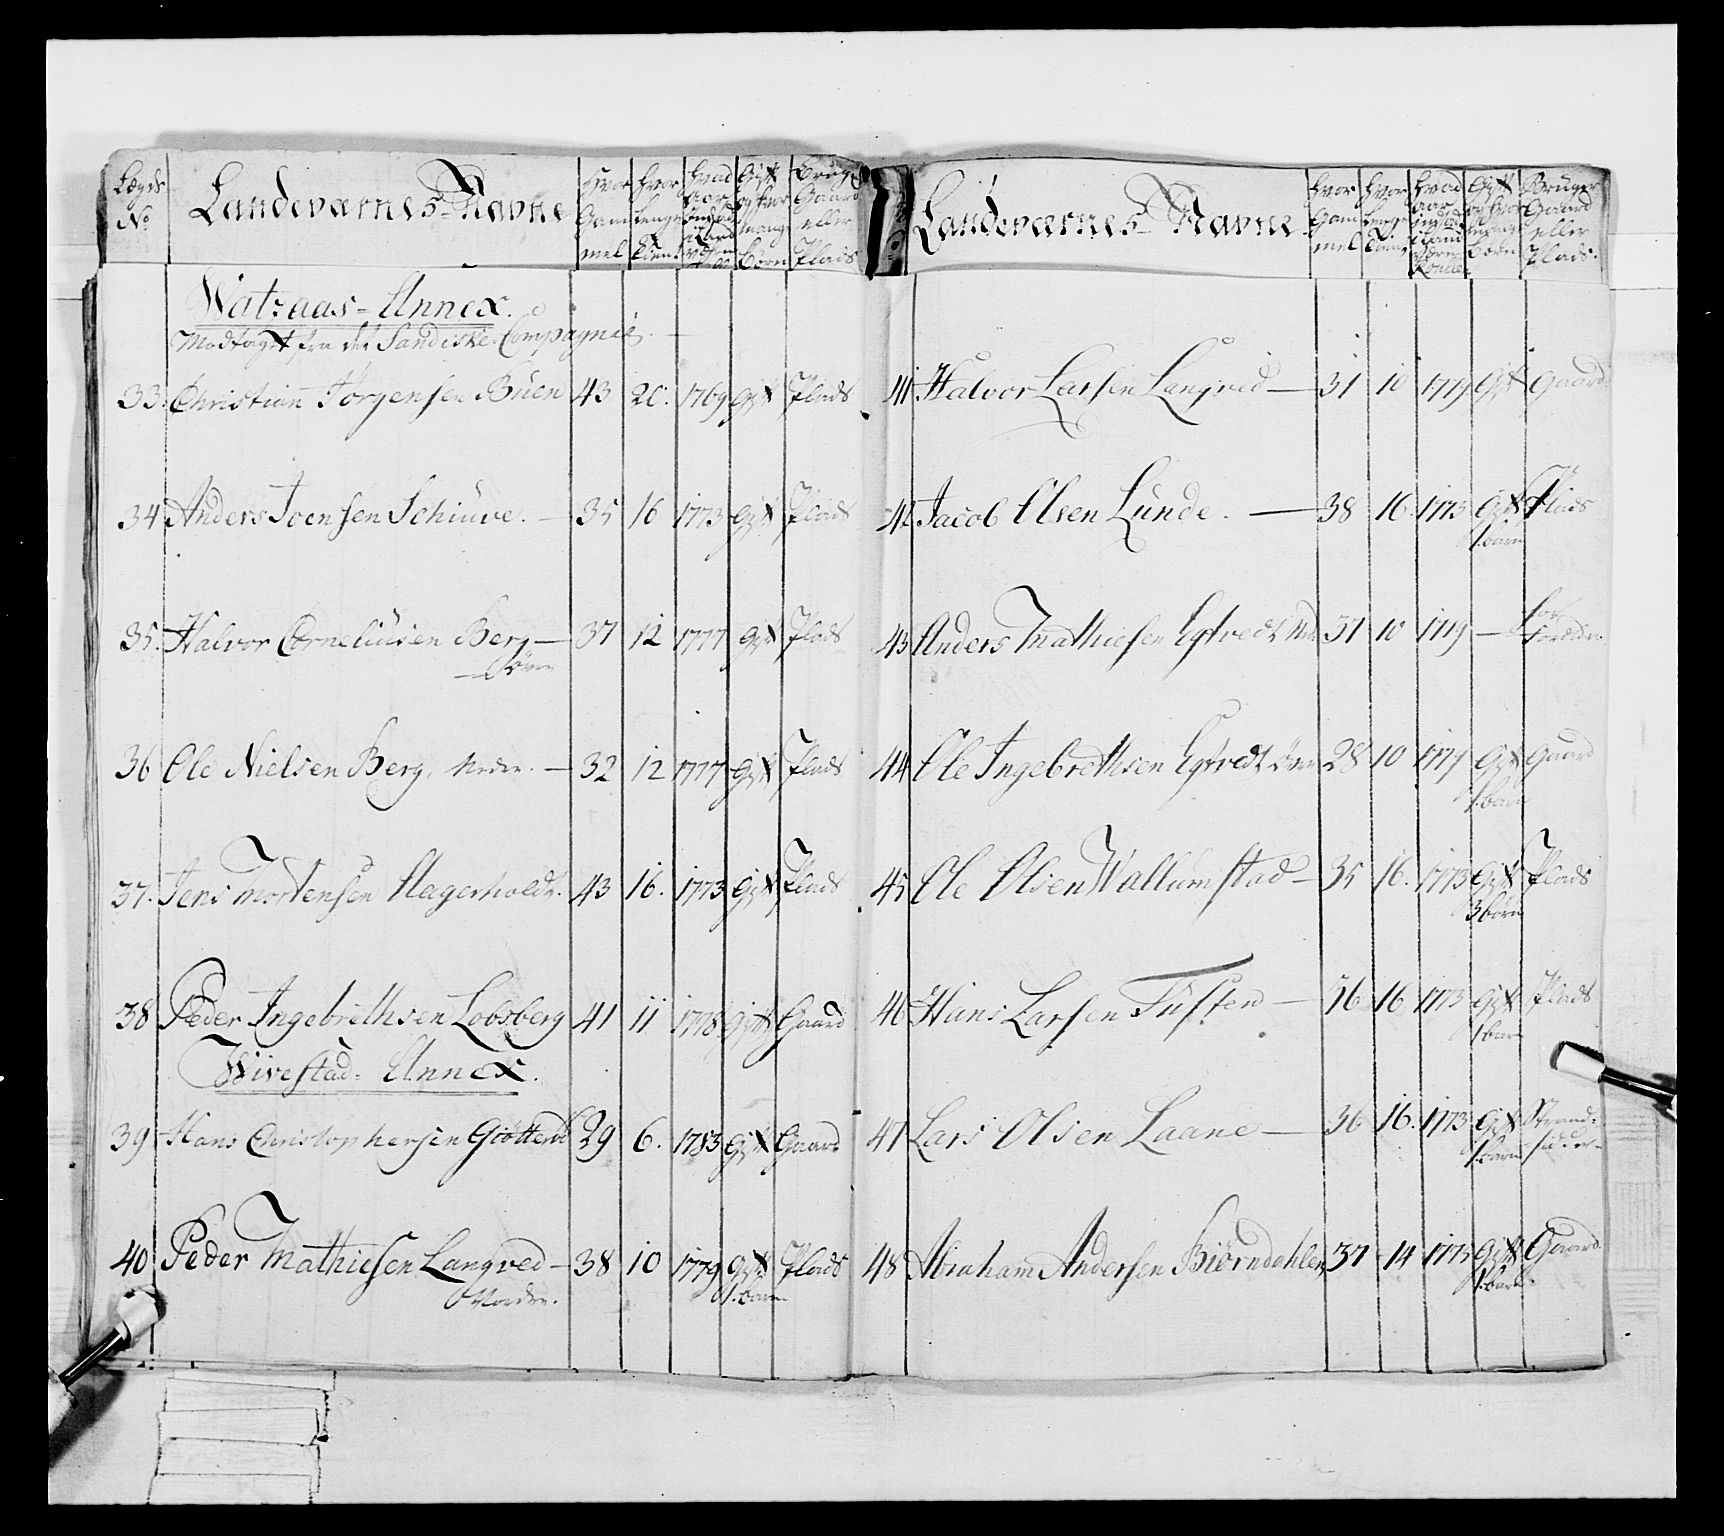 Lægds No
Landeværnes-Navne
Hvor Gam mel
Hvor lenge tient
Hvad Aar
Gift og hvor mange Børn
Bruger Gaard eller Plads
Watraas-Annex.
Modtaget fra det Sandiske Compagnie.
33. Christian Jorgensen Buen 43 20. 1769 Gift Plads
34 Anders Joensen Schiuve. — 35 16 1773 Gift Plads
35. Halvor Corneliusen Berg — 37 12 1777 Gift Plads
— Øvre
36 Ole Nielsen Berg, Nedre. — 32 12 1777 Gift Plads
37. Jens Mortensen Hagerholdt. 43 16. 1773 Gift Plads
38 Peder Ingebrethsen Lobsberg 41 11 1778 Gift Gaard
Wivestad-Annex.
39 Hans Christophersen Giötterud 29 6. 1783 Gift Gaard
40 Peder Mathiesen Langred — 38 10 1779 Gift Plads
Nordre. 1. barn
Landeværnes-Navne
Hvor Gam mel
Hvor lenge tient
Hvad Aar indtad i Land Værn
Gift og hvor mange Børn
Bruger Gaard eller Plads.
41 Halvor Larsen Langred — 31 10 1779 Gift Gaard
42 Jacob Olsen Lunde. — 38 16. 1773 Gift Plads
1. barn
43 Anders Mathiesen Egtvedt 31 10 1779 — hos
Foreldr.
44 Ole Ingebrethsen Egtvedt Øvre 28 10 1779 Gift Gaard
1. barn
45 Ole Olsen Wallumstad — 35 16. 1773 Gift Plads
3 børn
46 Hans Larsen Tufsten — 36 16 1773 Gift Plads
1 barn
47 Lars Olsen Laane — 36 16. 1773 Gift Strand-
1. barn sidder
48 Abraham Andersen Biörndahlen 37 14 1775 Gift Gaard.
1. barn